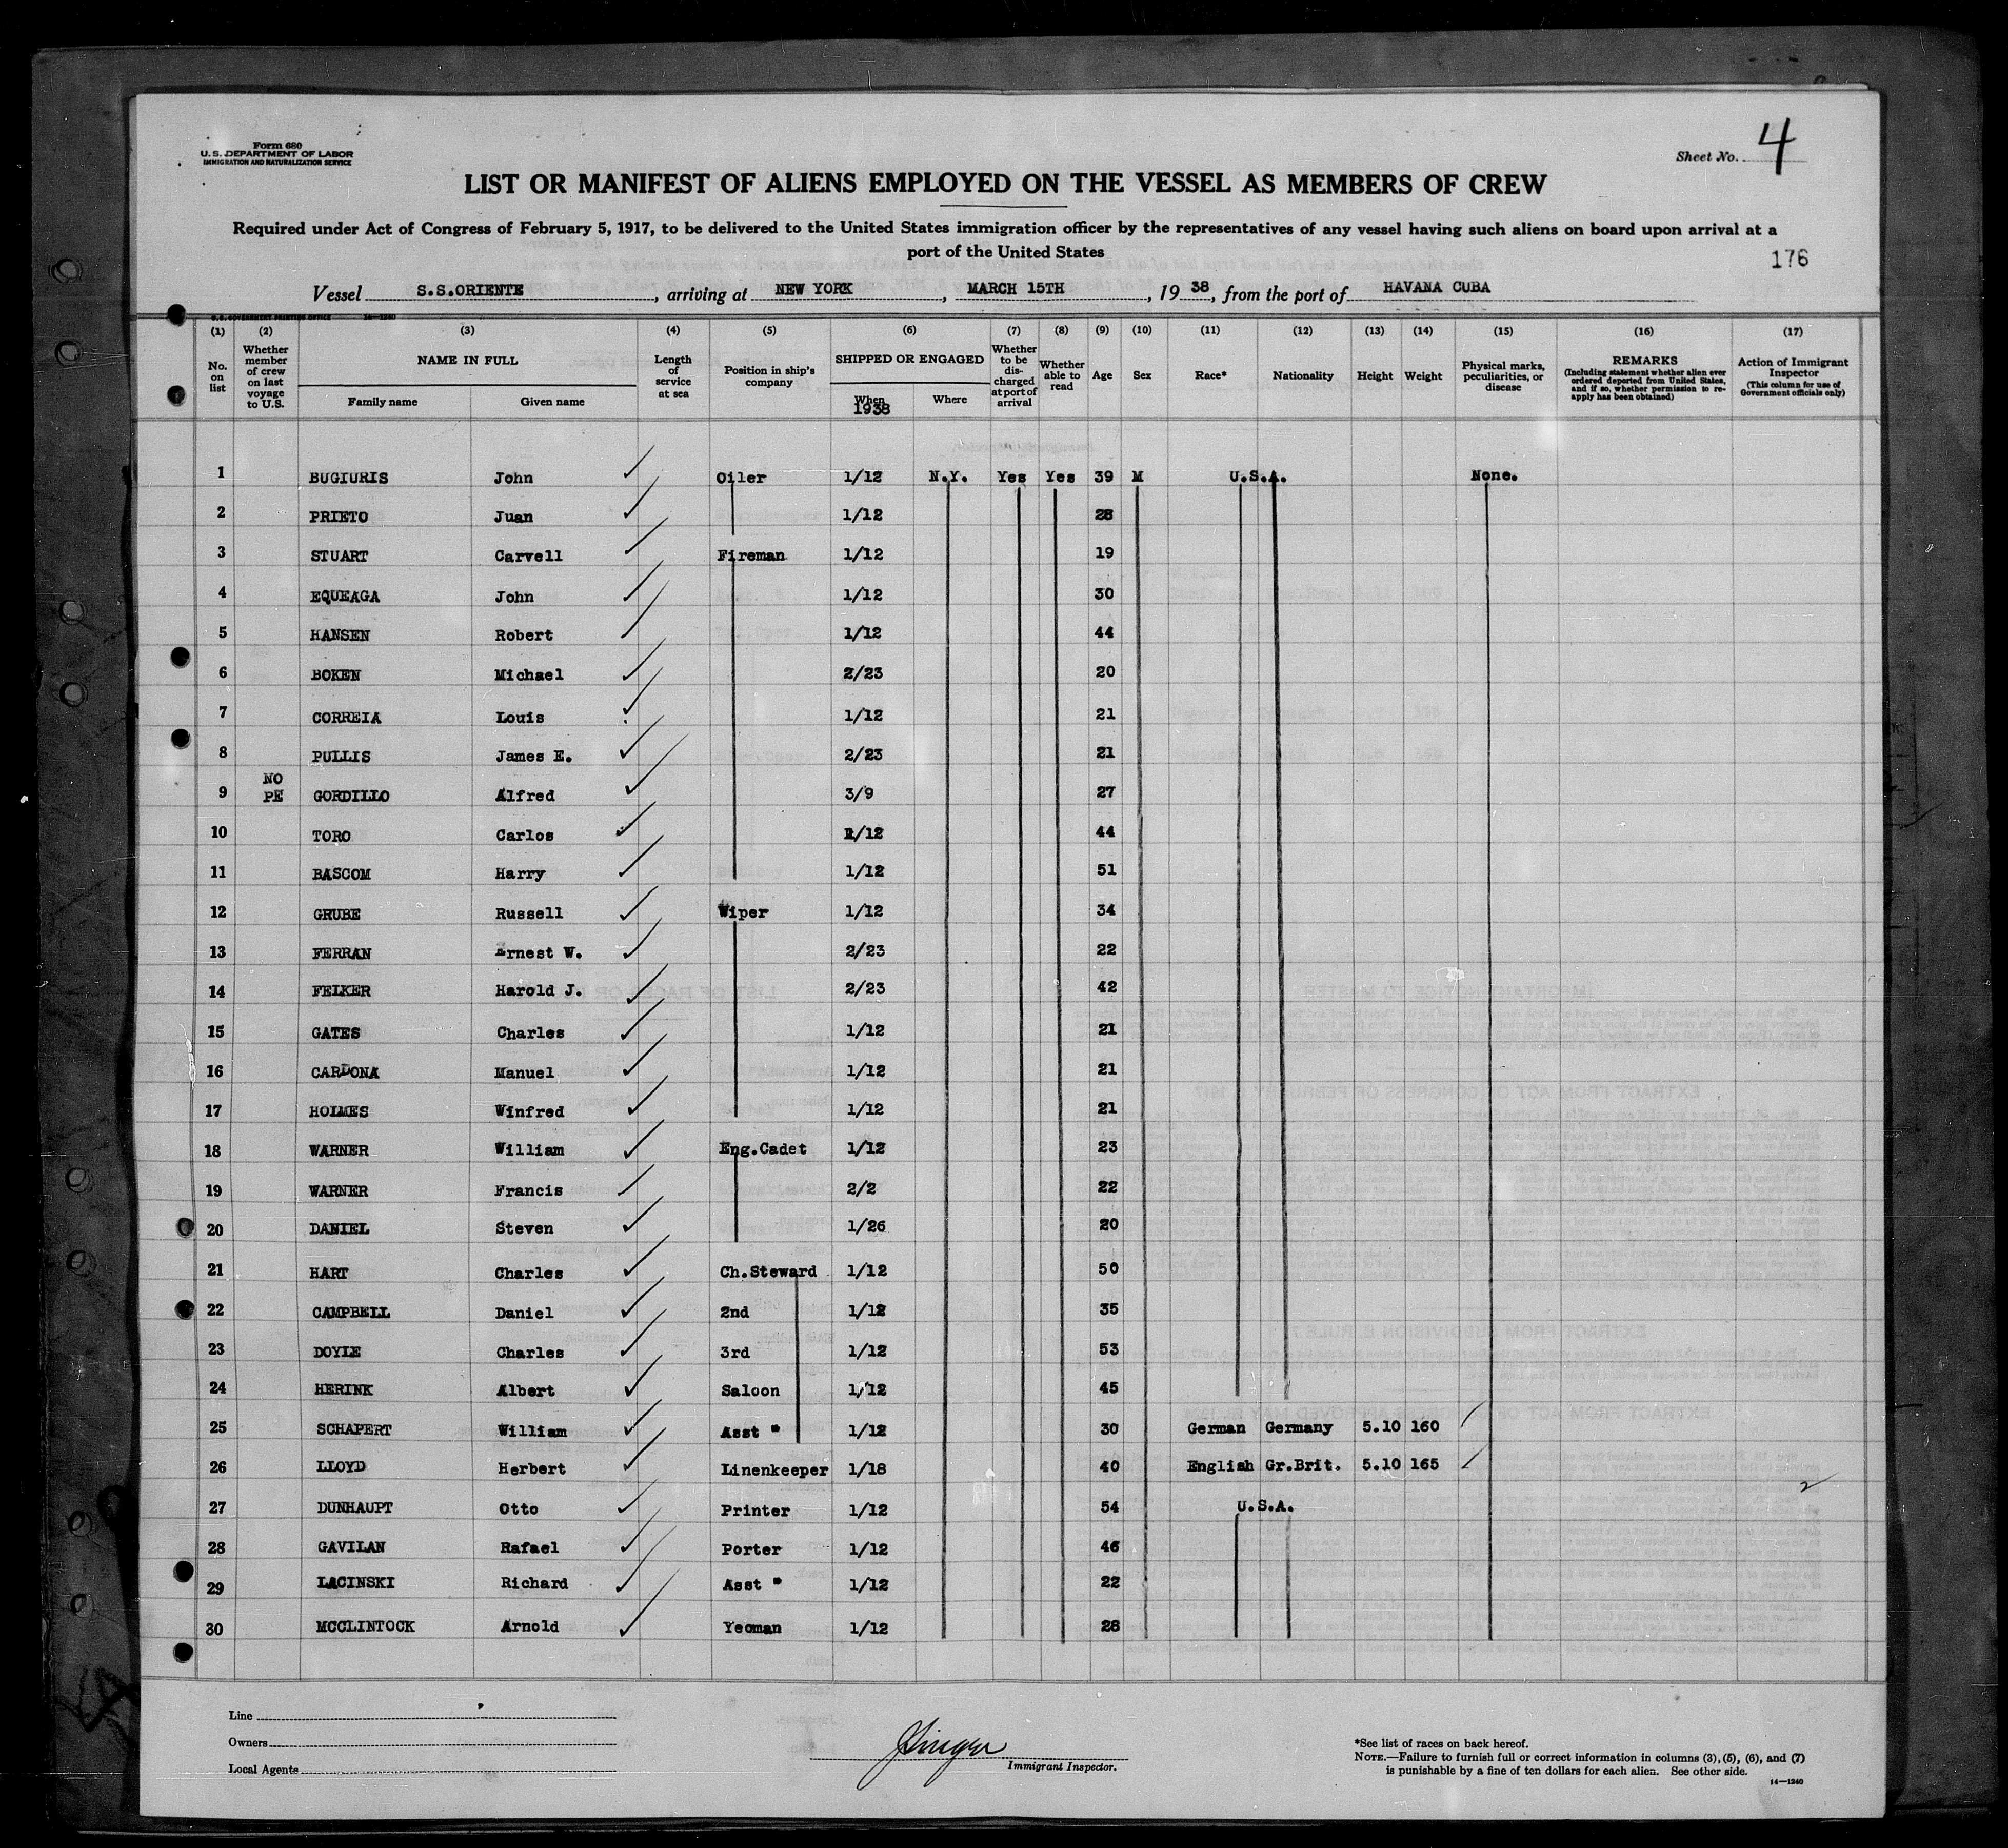 Form 680
U. S. DEPARTMENT OF LABOR
IMMIGRATION AND NATURALIZATION SERVICE
Sheet No. 4
LIST OR MANIFEST OF ALIENS EMPLOYED ON THE VESSEL AS MEMBERS OF CREW
Required under Act of Congress of February 5, 1917, to be delivered to the United States immigration officer by the representatives of any vessel having such aliens on board upon arrival at a
port of the United States
176
Vessel S.S.ORIENTE, arriving at NEW YORK, MARCH 15TH, 19 38, from the port of HAVANA CUBA
U.S. GOVERNMENT PRINTING OFFICE 14—1240
(1) (2) (3) (4) (5) (6) (7) (8) (9) (10) (11) (12) (13) (14) (15) (16) (17)
No. on list
Whether member of crew on last voyage to U.S.
NAME IN FULL
Family name Given name
Length of service at sea
Position in ship's company
SHIPPED OR ENGAGED
When Where
1938
Whether to be discharged at port of arrival
Whether able to read
Age
Sex
Race*
Nationality
Height
Weight
Physical marks, peculiarities, or disease
REMARKS
(Including statement whether alien ever ordered deported from United States, and if so, whether permission to reapply has been obtained)
Action of Immigrant Inspector
(This column for use of Government officials only)
1 BUGIURIS John Oiler 1/12 N.Y. Yes Yes 39 M U.S.A. None.
2 PRIETO Juan 1/12 28
3 STUART Carvell Fireman 1/12 19
4 EQUEAGA John 1/12 30
5 HANSEN Robert 1/12 44
6 BOKEN Michael 2/23 20
7 CORREIA Louis 1/12 21
8 PULLIS James E. 2/23 21
NO
9 PE GORDILLO Alfred 3/9 27
10 TORO Carlos 1/12 44
11 BASCOM Harry 1/12 51
12 GRUBE Russell Wiper 1/12 34
13 FERRAN Ernest W. 2/23 22
14 FELKER Harold J. 2/23 42
15 GATES Charles 1/12 21
16 CARDONA Manuel 1/12 21
17 HOLMES Winfred 1/12 21
18 WARNER William Eng.Cadet 1/12 23
19 WARNER Francis 2/2 22
20 DANIEL Steven 1/26 20
21 HART Charles Ch.Steward 1/12 50
22 CAMPBELL Daniel 2nd 1/12 35
23 DOYLE Charles 3rd 1/12 53
24 HERINK Albert Saloon 1/12 45
25 SCHAPERT William Asst " 1/12 30 German Germany 5.10 160
26 LLOYD Herbert Linenkeeper 1/18 40 English Gr.Brit. 5.10 165
27 DUNHAUPT Otto Printer 1/12 54 U.S.A.
28 GAVILAN Rafael Porter 1/12 46
29 LACINSKI Richard Asst " 1/12 22
30 MCCLINTOCK Arnold Yeoman 1/12 28
Line
Owners
Local Agents
Immigrant Inspector.
*See list of races on back hereof.
NOTE.—Failure to furnish full or correct information in columns (3), (5), (6), and (7)
is punishable by a fine of ten dollars for each alien. See other side.
14—1240